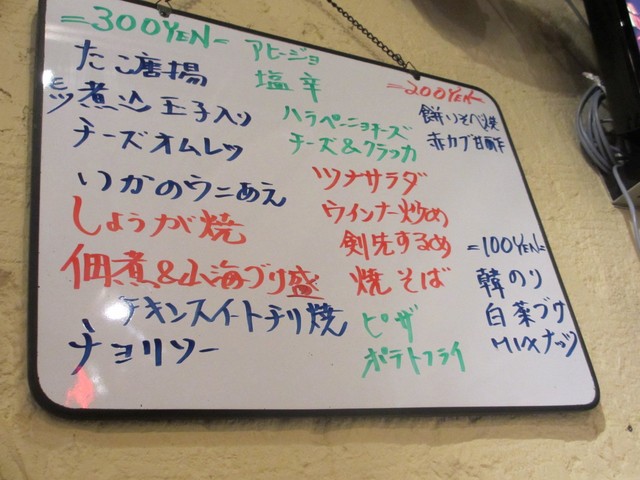 =300YEN=
たこ唐揚
モツ煮込 玉子入り
チーズオムレツ
いかのウニあえ
しょうが焼
佃煮&山海ブリ盛
チキンスイートチリ焼
チョリソー
アヒージョ
塩辛
ハラペーニョチーズ
チーズ&クラッカ
ツナサラダ
ウインナー炒め
剣先するめ
焼そば
ピザ
ポテトフライ
=200YEN=
餅いそべ焼
赤カブ甘酢
=100YEN=
韓のり
白菜ブサ
MIXナッツ